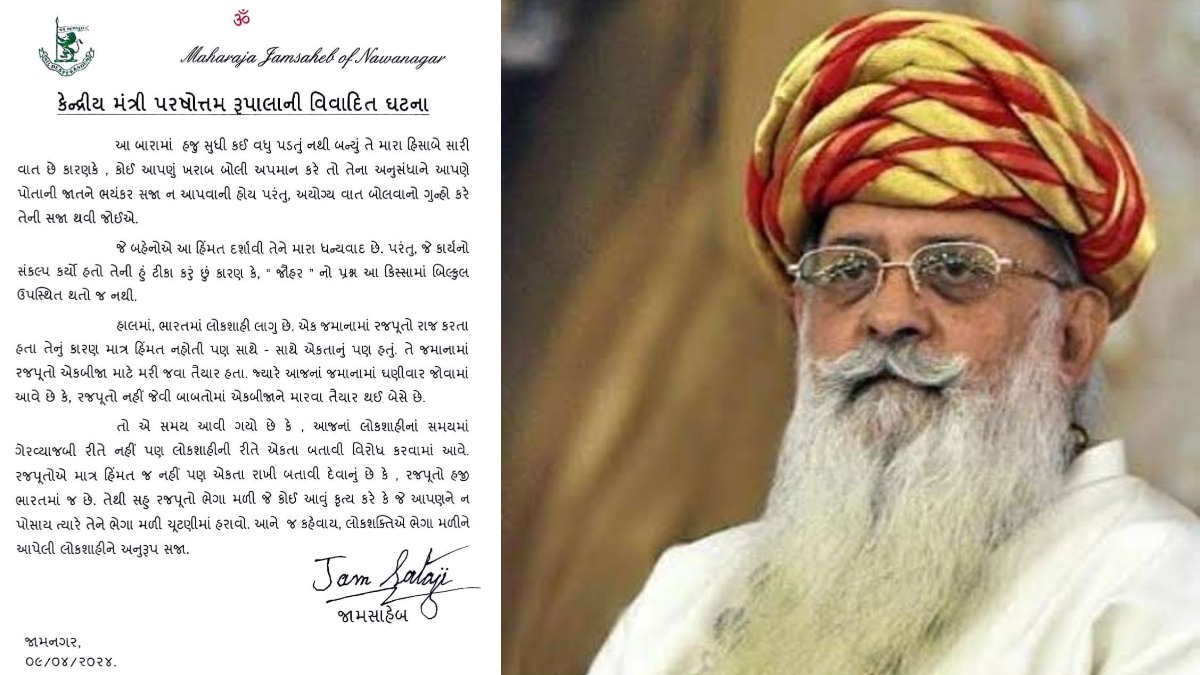 ॐ
Maharaja Jamsaheb of Nawanagar
કેન્દ્રીય મંત્રી પરષોત્તમ રૂપાલાની વિવાદિત ઘટના
આ બારામાં હજુ સુધી કઈ વધુ પડતું નથી બન્યું તે મારા હિસાબે સારી
વાત છે કારણકે , કોઈ આપણું ખરાબ બોલી અપમાન કરે તો તેના અનુસંધાને આપણે
પોતાની જાતને ભયંકર સજા ન આપવાની હોય પરંતુ, અયોગ્ય વાત બોલવાનો ગુન્હો કરે
તેની સજા થવી જોઈએ.
જે બહેનોએ આ હિંમત દર્શાવી તેને મારા ધન્યવાદ છે. પરંતુ, જે કાર્યનો
સંકલ્પ કર્યો હતો તેની હું ટીકા કરું છું કારણ કે, “ જૌહર ” નો પ્રશ્ન આ કિસ્સામાં બિલ્કુલ
ઉપસ્થિત થતો જ નથી.
હાલમાં, ભારતમાં લોકશાહી લાગુ છે. એક જમાનામાં રજપૂતો રાજ કરતા
હતા તેનું કારણ માત્ર હિંમત નહોતી પણ સાથે - સાથે એકતાનું પણ હતું. તે જમાનામાં
રજપૂતો એકબીજા માટે મરી જવા તૈયાર હતા. જ્યારે આજનાં જમાનામાં ઘણીવાર જોવામાં
આવે છે કે, રજપૂતો નહીં જેવી બાબતોમાં એકબીજાને મારવા તૈયાર થઈ બેસે છે.
તો એ સમય આવી ગયો છે કે , આજનાં લોકશાહીનાં સમયમાં
ગેરવ્યાજબી રીતે નહીં પણ લોકશાહીની રીતે એકતા બતાવી વિરોધ કરવામાં આવે.
રજપૂતોએ માત્ર હિંમત જ નહીં પણ એકતા રાખી બતાવી દેવાનું છે કે , રજપૂતો હજી
ભારતમાં જ છે. તેથી સહુ રજપૂતો ભેગા મળી જે કોઈ આવું કૃત્ય કરે કે જે આપણને ન
પોસાય ત્યારે તેને ભેગા મળી ચૂટણીમાં હરાવો. આને જ કહેવાય, લોકશક્તિએ ભેગા મળીને
આપેલી લોકશાહીને અનુરૂપ સજા.
Jam Sataji
જામસાહેબ
જામનગર,
૦૯/૦૪/૨૦૨૪.